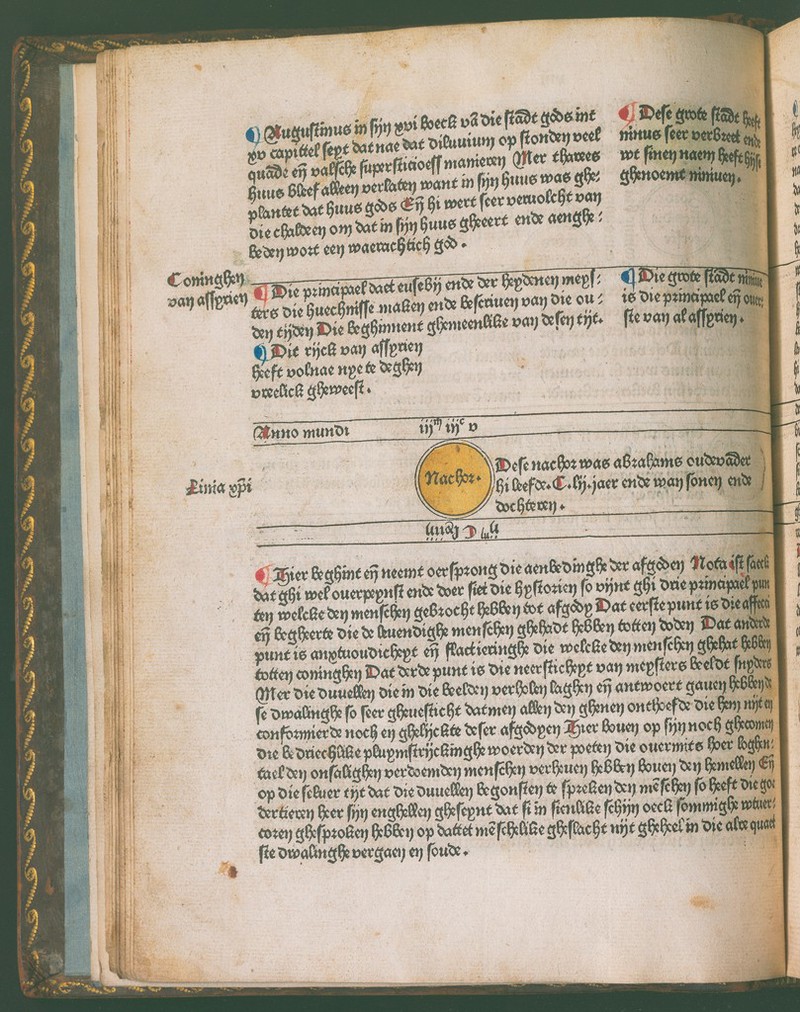 ¶ Augustinus in sijn xvi boeck vā die stadt gods int
xv capittel seyt dat nae dat diluuium op stonden veel
quade eñ valsche superstitioess manieren Mer tharees
huus bleef alleen verlaten want in sijn huus was ghe⸗
plantet dat huus gods Eñ hi wert seer veruolcht van
die chaldeen om dat in sijn huus gheeert ende aenghe⸗
beden wort een waerachtich god .
¶ Dese grote stadt heeft
ninus seer verbreet ende
wt sinen naem heeft hijse
ghenoemt niniuen.
Coninghen
van assyrien
¶ Die principael daet eusebij ende der heydenen meys⸗
ters die huechnisse maken ende bescriuen van die ou⸗
den tijden Die beghinnent ghemeenlike van desen tijt.
¶ Dit rijck van assyrien
heeft volnae nye te deghen
vreelick gheweest .
¶ Die grote stadt niniue
is die principael eñ ouer
ste van al assyrien .
Anno mundi iijᵐ iijᶜ v
Linia xp̄i
Nachor.
Dese nachor was abrahams oudevader
hi leefde. C.lij. jaer ende wan sonen ende
dochteren .
¶ Hier beghint eñ neemt oersprong die aenbedinghe der afgoden Nota ist saeck
dat ghi wel ouerpeynst ende doer siet die hystorien so vijnt ghi drie principael pun
ten welcke den menschen gebrocht hebben tot afgody Dat eerste punt is die affecci
eñ begheerte die de leuendighe menschen ghehadt hebben totten doden Dat anderde
punt is anxtuoudicheyt eñ flactieringhe die welcke den menschen ghehat hebben
totten coninghen Dat derde punt is die neersticheyt van meysters beeldt snyders
Mer die duuellen die in die beelden verholen laghen eñ antwoert gauen hebben de
se dwalinghe so seer gheuesticht datmen allen den ghenen onthoefde die hem nijt en
conformierde noch en ghelijckte deser afgodyen Hier bouen op sijn noch ghecomen
die bedriechlike pluymstrijckinghe woerden der poeten die ouermits hoer loghen⸗
tael den onsalighen verdoemden menschen verheuen hebben bouen den hemellen Eñ
op die seluer tijt dat die duuellen begonsten te spreken den mēschen so heeft die goe
dertieren heer sijn enghellen gheseynt dat si in sienlike schijn oeck sommighe wtuer⸗
coren ghesproken hebben op dattet mēschelike gheslacht nijt gheheel in die alre quaet
ste dwalinghe vergaen en soude .